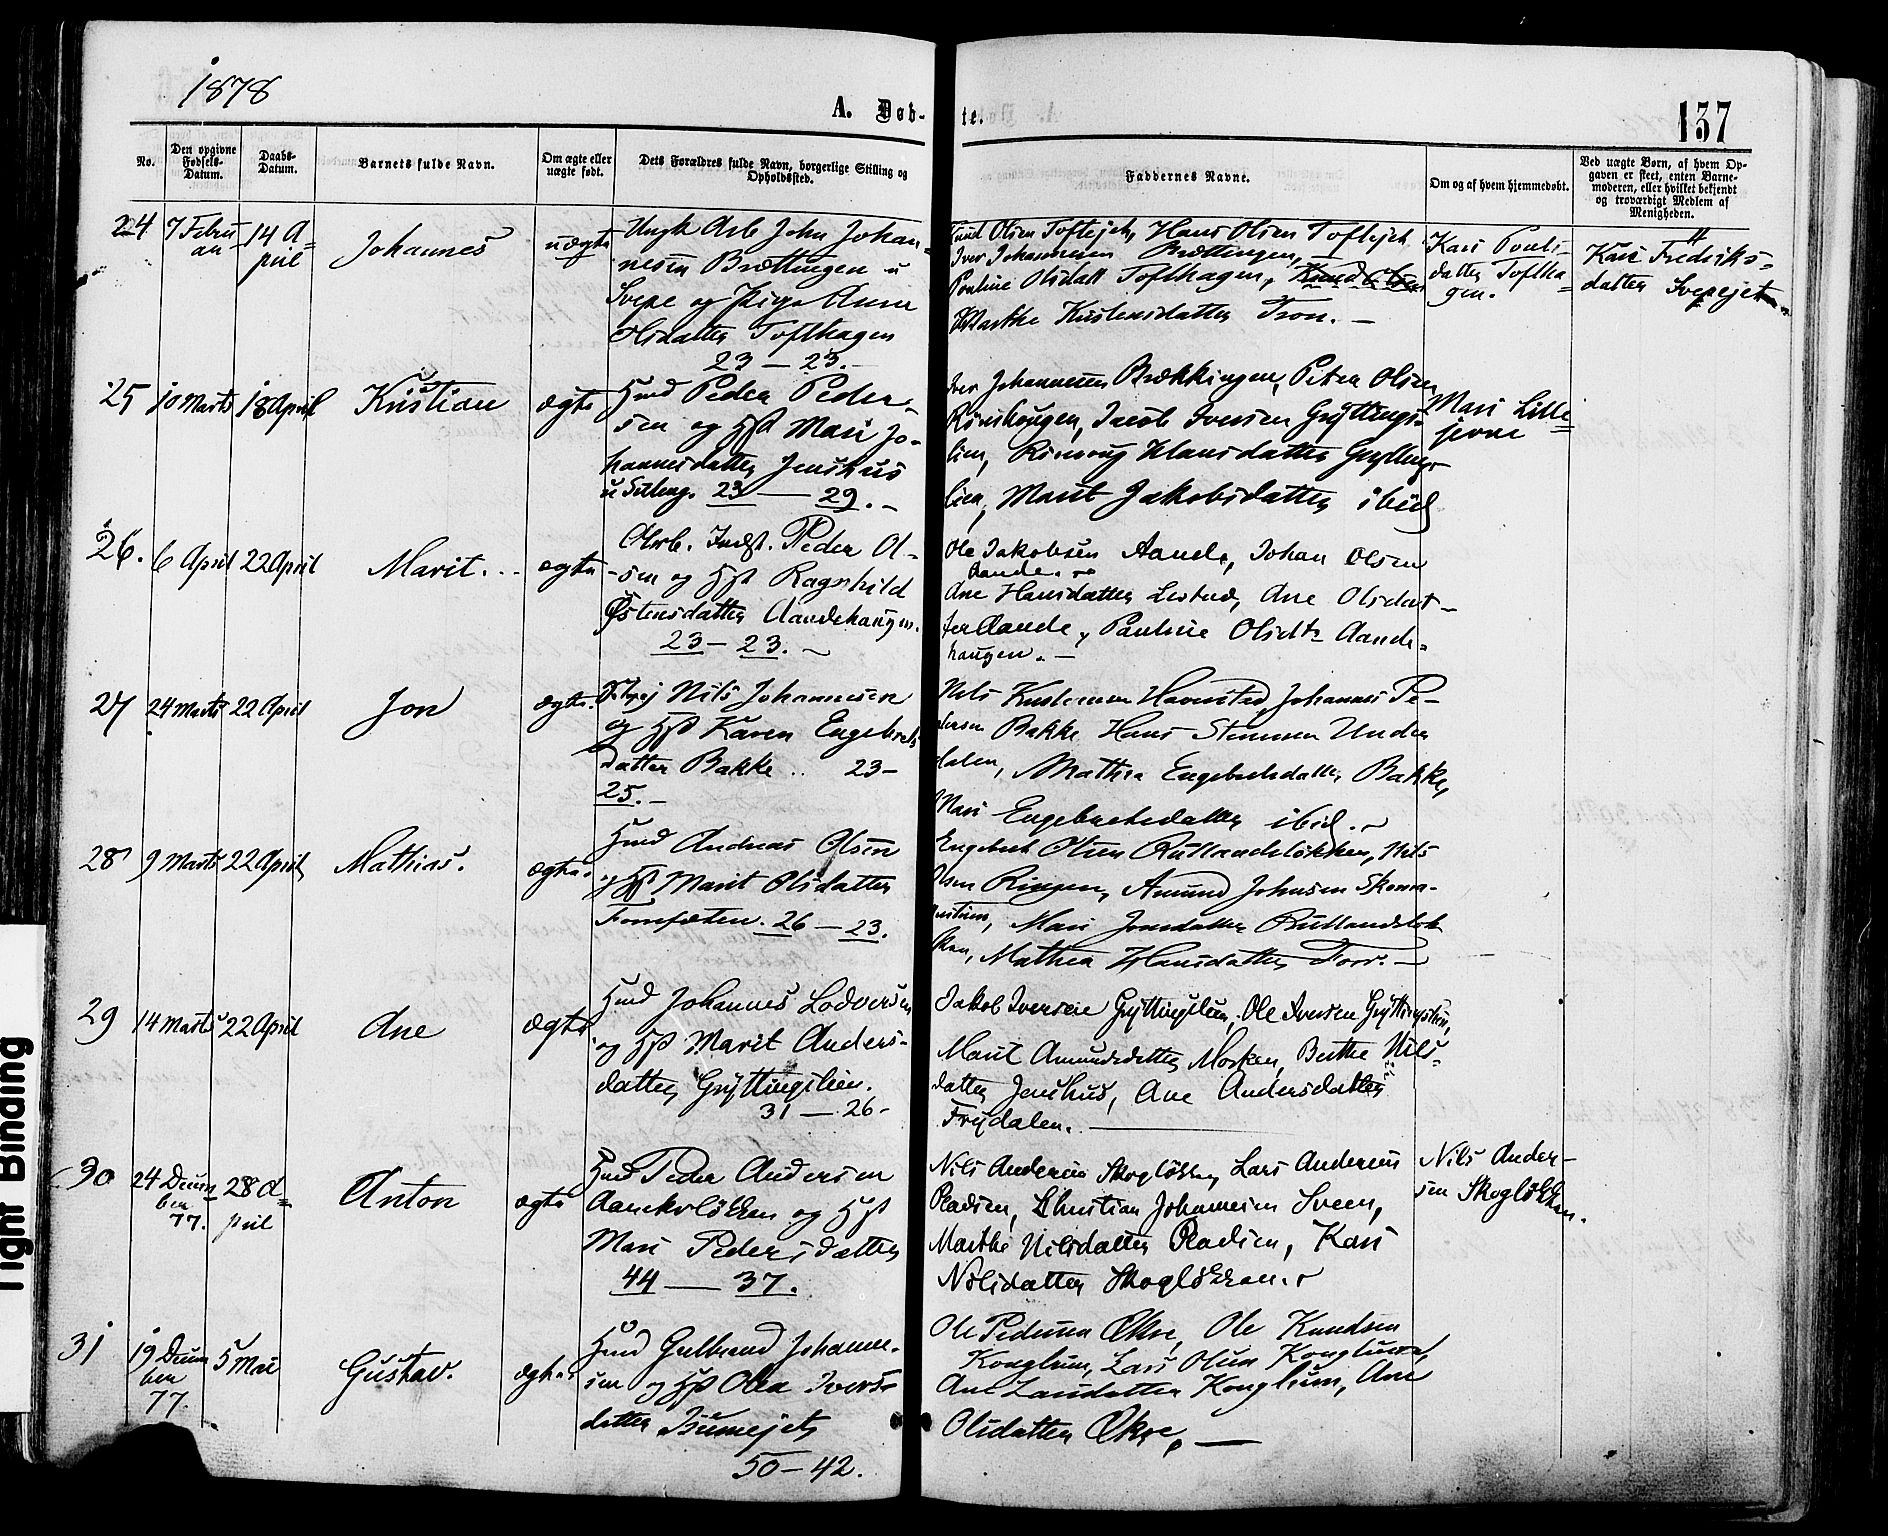 1878
A. Døb-
te.
137
No.
Den opgivne
Fødsels-
Datum.
Daabs-
Datum.
Barnets fulde Navn.
Om ægte eller
uægte født.
Dets Forældres fulde Navn, borgerlige Stilling og
Opholdssted.
Faddernes Navne.
Om og af hvem hjemmedøbt.
Ved uægte Børn, af hvem Op-
gaven er skeet, enten Barne-
moderen, eller hvilket bekjendt
og troværdigt Medlem af
Menigheden.
24
7 Febru
ar
14 A=
pril
Johannes
uægte
Ungk Arb John Johan-
nesen Brættingen u
Svepe og Pige Anne
Olsdatter Tofthagen
23 — 23.
Knud Olsen Toftejet, Hans Olsen Toftejet
Iver Johannesen Brættingen,
Pauline Olsdatt Tofthagen,
Marthe Kristensdatter Tron. —
Kari Pouls-
datter Toftha=
gen.
Kari Fredriks=
datter Svepejet
25
10 Marts
18 April
Kristian
ægte
Hmd Peder Peder-
sen og Hst Mari Jo-
hannesdatter Jenshus
23 — 29. —
Iver Johannesen Brækkingen, Petra Olsen
Jacob Iversen Gryttings-
lien, Hansdatter Gryttings-
lien, Marit Jakobsdatter ibid
Mari Lille
26.
6 April
22 April
Marit.
ægte
Arb. Indst. Peder Ol-
sen og Hst Ragnhild
Østensdatter Aandehaugen.
23 — 23. —
Ole Jakobsen Aande, Johan Olsen
Aande.
Ane Hansdatter Ane Olsdat-
ter Aande, Pauline Olsdtr Aande-
haugen. —
27
24 Marts
22 April
Jon
ægte
Nils Johannesen
og Hst Karen Engebrets
datter Bakke .. 23 —
25. —
Nils Kristensen Havnsted, Johannes Pe-
dersen Bakke Hans Stensen Under
dalen, Mathea Engebretsdatter Bakke,
Mari Engebretsdatter ibid.
28
9 Marts
22 April
Mathias.
ægte
Hmd Andreas Olsen
og Hst Marit Olsdatter
26 — 23.
Engebret Olsen Rullandsløkken, Nils
Olsen Ringen, Amund Johnsen Skoma-
Mari Jonsdatter Rullandsløk
ken, Mathea Hansdatter —
29
14 Marts
22 April
Ane
ægte
Hmd Johannes Lodversen
og Hst Marit Anders-
datter Gryttingslien.
31 — 26 -
Jakob Iversen Gryttingslien, Ole Iversen Gryttingslien,
Marit Amundsdatter Morken, Berthe Nils-
datter Jenshus, Ane Andersdatter
Frydalen. —
30
24 Decem
ber
77.
28 A=
pril
Anton
ægte
Hmd Peder Andersen
og Hst
Mari Pedersdatter
44 — 37.
Nils Andersen Skogløkken, Lars Andersen
Pladsen, Christian Johannesen Sveen,
Marthe Nilsdatter Pladsen, Kari
Nilsdatter Skogløkken.
Nils Ander-
sen Skogløkken.
31
19 Decem
ber
77.
5 Mai
Gustav.
ægte
Hmd Gulbrand Johanne-
sen og Hst Olea Ivers-
datter
50 — 42.
Ole Pedersen Økre, Ole Knudsen
Konglum, Lars Olsen Konglum,
Ane Larsdatter Konglum, Ane
Olsdatter Økre, —
Tight Binding